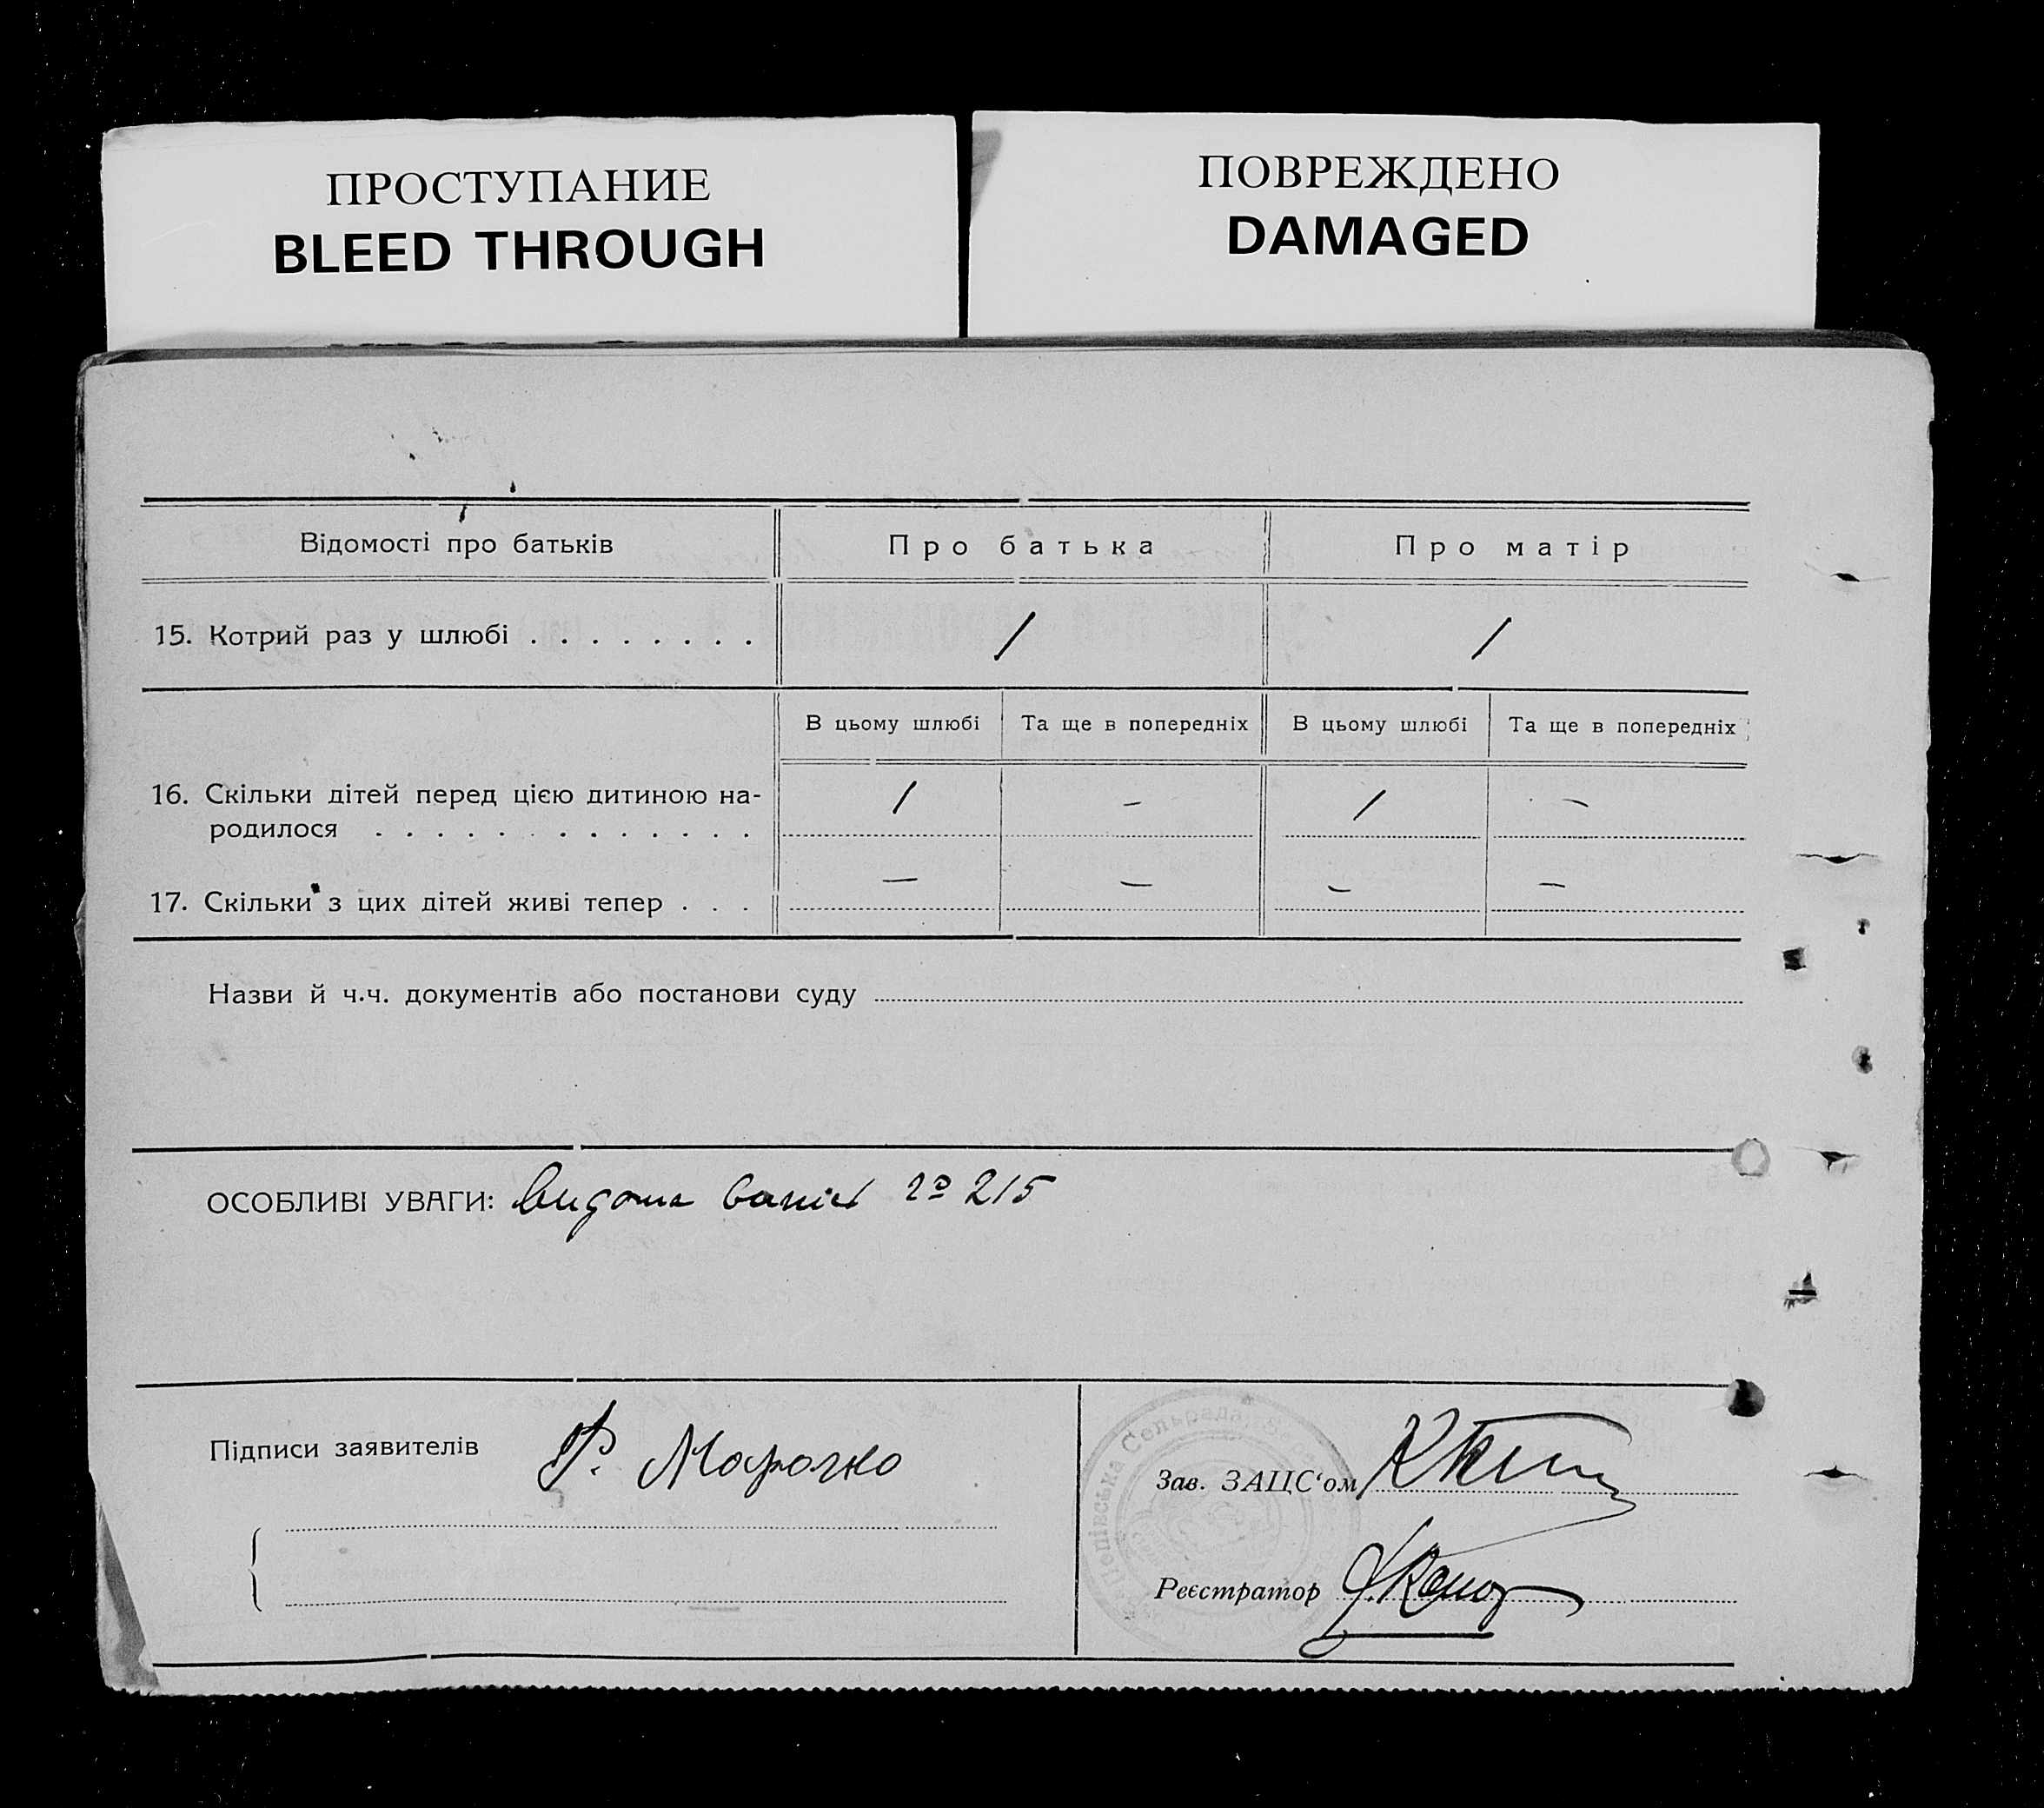 ПРОСТУПАНИЕ
BLEED THROUGH
ПОВРЕЖДЕНО
DAMAGED
Відомості про батьків Про батька Про матір
15. Котрий раз у шлюбі . . . . . . . . / /
В цьому шлюбі Та ще в попередніх В цьому шлюбі Та ще в попередніх
16. Скільки дітей перед цією дитиною на-
родилося . . . . . . . . . . . . . / – / –
17. Скільки з цих дітей живі тепер . . . – – – –
Назви й ч.ч. документів або постанови суду
ОСОБЛИВІ УВАГИ: 215
Підписи заявителів Ф. Марочко
Зав. ЗАЦС‘ом
Реєстратор
Сельрада